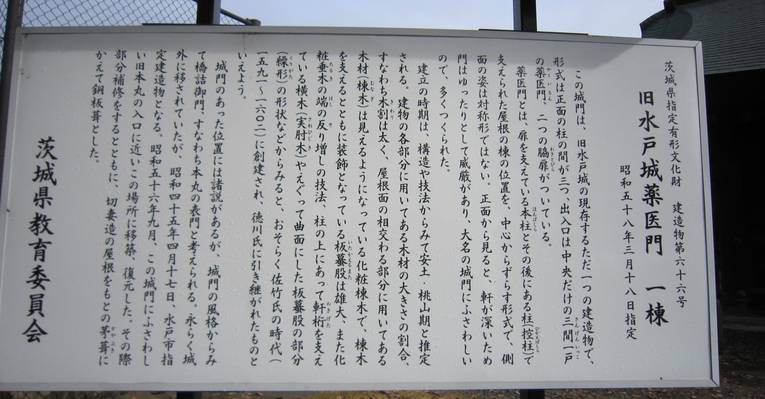 茨城県指定有形文化財　建造物第六十六号
旧水戸城薬医門　一棟
昭和五十八年三月十八日指定
この城門は、旧水戸城の現存するただ一つの建造物で、
形式は正面の柱の間が三つ、出入口は中央だけの三間一戸
の薬医門、二つの脇扉がついている。
薬医門とは、扉を支えている本柱とその後にある柱(控柱)で
支えられた屋根の棟の位置を、中心からずらす形式で、側
面の姿は対称形ではない。正面から見ると、軒が深いため
門はゆったりとして威厳があり、大名の城門にふさわしい
ので、多くつくられた。
建立の時期は、構造や技法からみて安土・桃山期と推定
される。建物の各部分に用いてある木材の大きさの割合、
すなわち木割は太く、屋根面の相交わる部分に用いてある
木材(棟木)は見えるようになっている化粧棟木で、棟木
を支えるとともに装飾となっている板蟇股は雄大、また化
粧垂木の端の反り増しの技法、柱の上にあって軒桁を支え
ている横木(実肘木)やえぐって曲面にした板蟇股の部分
(繰形)の形状などからみると、おそらく佐竹氏の時代(一
五九一〜一六〇二)に創建され、徳川氏に引き継がれたものと
いえよう。
城門のあった位置には諸説があるが、城門の風格からみ
て橋詰御門、すなわち本丸の表門と考えられる。永らく城
外に移されていたが、昭和四十五年四月十七日、水戸市指
定建造物となる。昭和五十六年九月、この城門にふさわし
い旧本丸の入口に近いこの場所に移築、復元した。その際
部分補修をするとともに、切妻造の屋根をもとの茅葺に
かえて銅板葺とした。
茨城県教育委員会